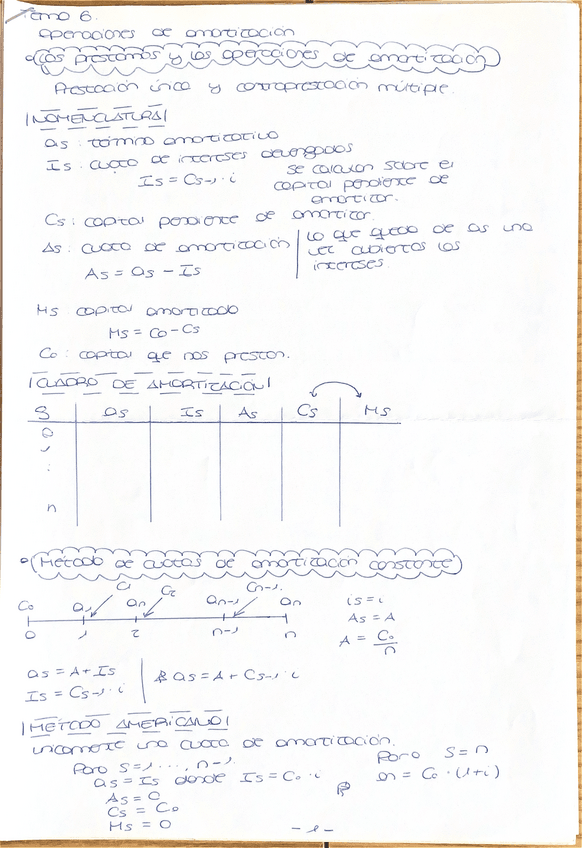 Tema 6.
Operaciones de amortización
Los préstamos y las operaciones de amortización
Prestación única y contraprestación múltiple.
NOMENCLATURA
as: término amortizativo
Is: cuota de intereses devengados
Is = Cs-1 · i
se calculan sobre el
capital pendiente de
amortizar.
Cs: capital pendiente de amortizar.
As: cuota de amortización
As = as - Is
lo que queda de as una
vez cubiertos los
intereses.
Ms: capital amortizado
Ms = Co - Cs
Co: capital que nos prestan.
CUADRO DE AMORTIZACIÓN
S as Is As Cs Ms
0
1
:
n
Método de cuotas de amortización constante
C1 C2 Cn-1
Co a1 an an-1 an
0 1 2 n-1 n
is = i
As = A
A = Co/n
as = A + Is
Is = Cs-1 · i
as = A + Cs-1 · i
MÉTODO AMERICANO
Unicamente una cuota de amortización.
Para S=1, ..., n-1.
as = Is donde Is = Co · i
As = 0
Cs = Co
Ms = 0
Para S = n
an = Co · (1+i)
- 1 -